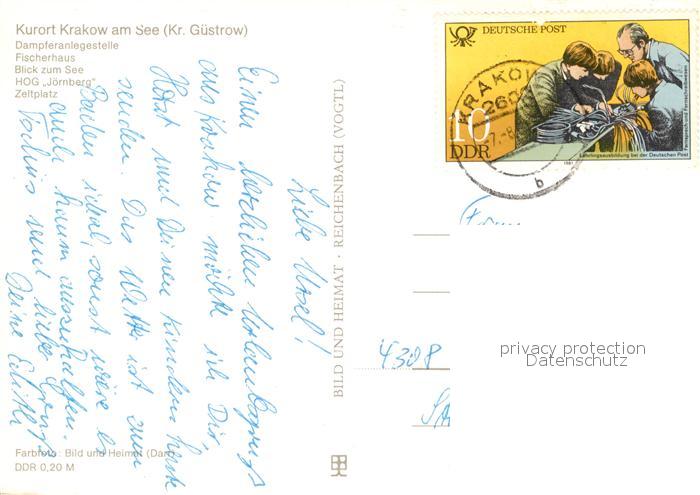 Kurort Krakow am See (Kr. Güstrow)
Dampferanlegestelle
Fischerhaus
Blick zum See
HOG „Jörnberg"
Zeltplatz
Liebe Ursel!
Einen herzlichen Urlaubsgruß
aus Krakow möchte ich Dir,
Horst und Deinen Kindern heute
senden. Das Wetter ist zum
Baden ideal, sonst wäre es
auch kaum auszuhalten.
Tschüs und liebe Grüße
Deine Edith
Farbfoto: Bild und Heimat
DDR 0,20 M
BILD UND HEIMAT · REICHENBACH (VOGTL)
DEUTSCHE POST
10
DDR
Lehrlingsausbildung bei der Deutschen Post
1981
KRAKOW
260
b
4308
privacy protection
Datenschutz